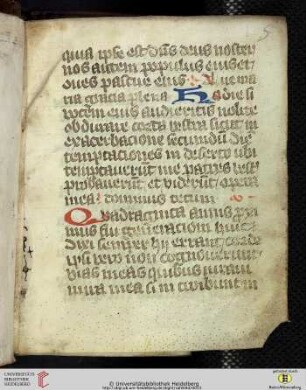 5
quia ipse est dñs deus noster
nos autem populus eius et
oues pascue eius Aue ma
ria gracia plena Hodie si
vocem eius audieritis nolite
obdurare corda vestra sicut in
exacerbacione secundū die
temptacionis in deserto ubi
temptauerūt me patres vest
probauerūt et viderūt opera
mea dominus tecum
Quadraginta annis proxi
mus fui generacioni huic
dixi semper hij errant corde
ipsi vero non cognouerunt
vias meas quibus iuraui
in ira mea si introibunt in
UNIVERSITÄTS-
BIBLIOTHEK
HEIDELBERG
© Universitätsbibliothek Heidelberg